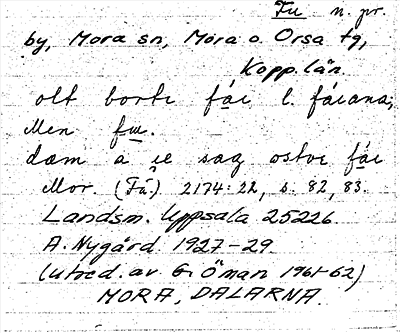 Fu n. pr.
by, Mora sn, Mora o. Orsa tg,
Kopp. län.
olt borti fái l. fáiana;
Men fu.
dam a ie sag ostvi fái
Mor. (Få.) 2174:22, s. 82, 83.
Landsm. Uppsala 25226.
A. Nygård 1927-29.
(utred. av G. Öman 1961-62)
MORA, DALARNA.